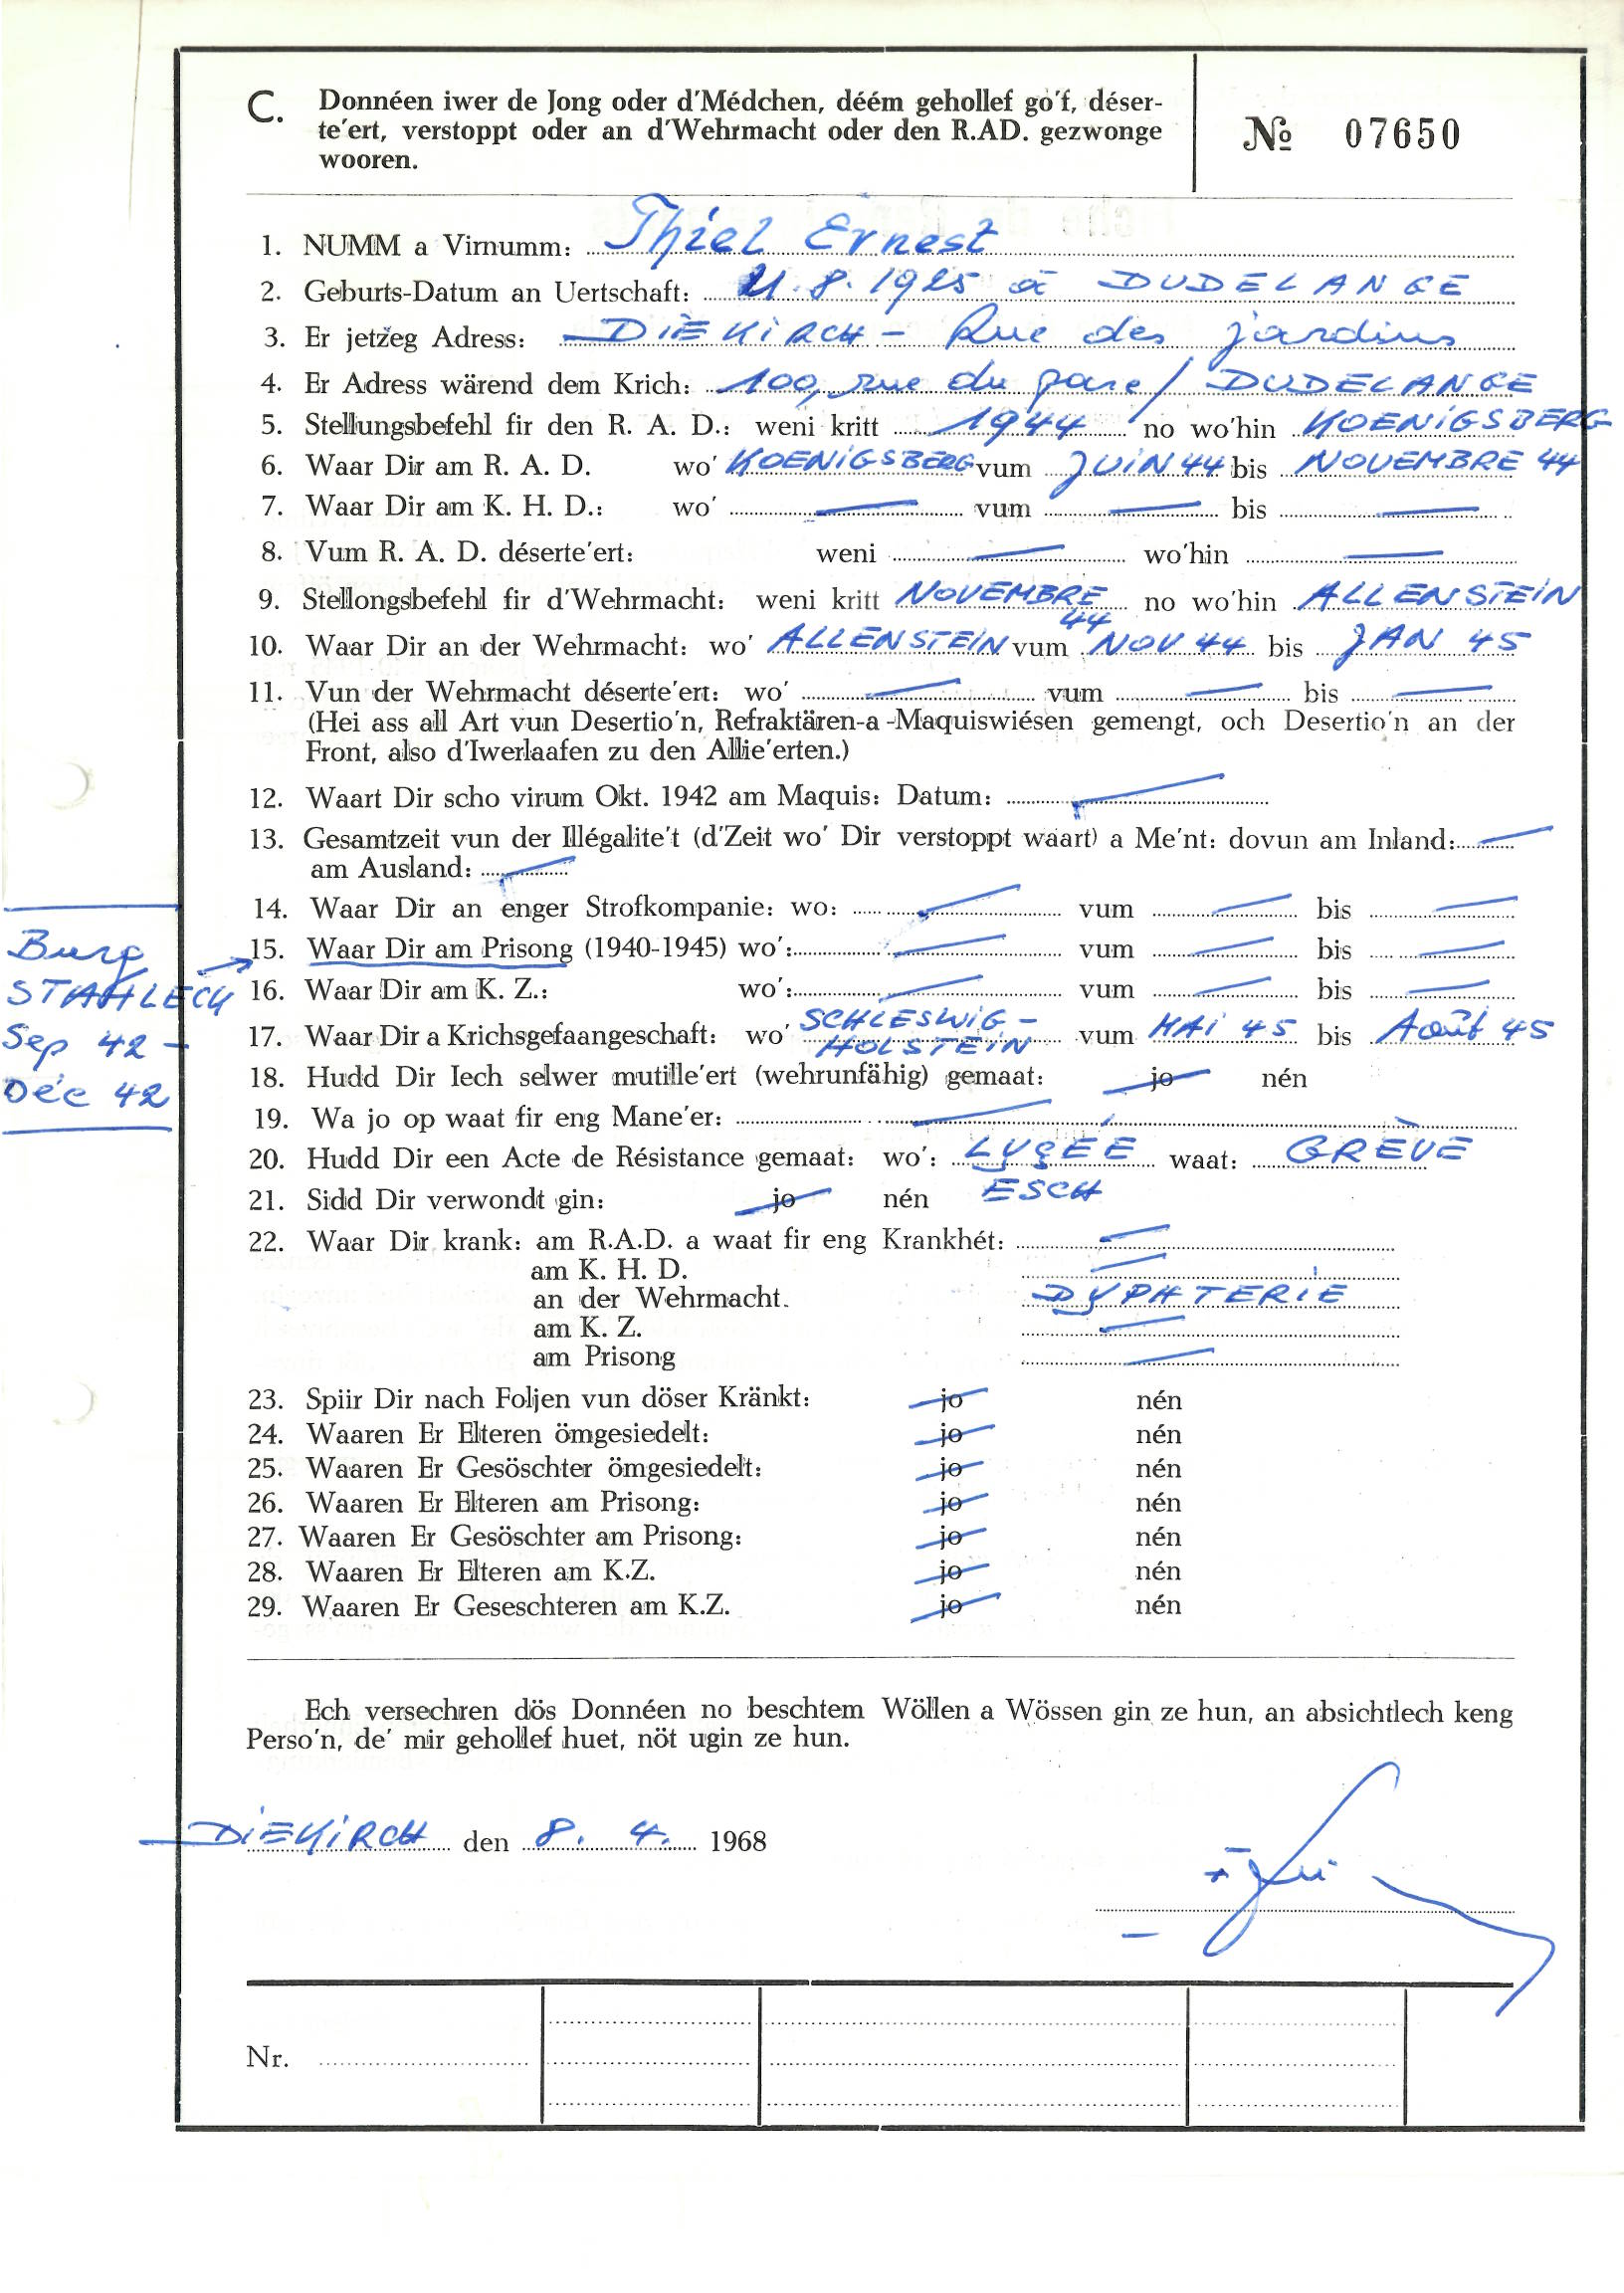 C. Donnéen iwer de Jong oder d'Médchen, déém gehollef go'f, déser-
te'ert, verstoppt oder an d'Wehrmacht oder den R.AD. gezwonge
wooren.
№ 07650
1. NUMM a Virnumm: Thiel Ernest
2. Geburts-Datum an Uertschaft: 21.8.1925 à DUDELANGE
3. Er jetzeg Adress: DIEKIRCH - Rue des jardins
4. Er Adress wärend dem Krich: 100, rue du parc / DUDELANGE
5. Stellungsbefehl fir den R. A. D.: weni kritt 1944 no wo'hin KOENIGSBERG
6. Waar Dir am R. A. D. wo' KOENIGSBERG vum JUIN 44 bis NOVEMBRE 44
7. Waar Dir am K. H. D.: wo' — vum — bis —
8. Vum R. A. D. déserte'ert: weni — wo'hin —
9. Stellongsbefehl fir d'Wehrmacht: weni kritt NOVEMBRE 44 no wo'hin ALLENSTEIN
10. Waar Dir an der Wehrmacht: wo' ALLENSTEIN vum NOV 44 bis JAN 45
11. Vun der Wehrmacht déserte'ert: wo' — vum — bis —
(Hei ass all Art vun Desertio'n, Refraktären-a-Maquiswiésen gemengt, och Desertio'n an der
Front, also d'Iwerlaafen zu den Allie'erten.)
12. Waart Dir scho virum Okt. 1942 am Maquis: Datum: —
13. Gesamtzeit vun der Illégalite't (d'Zeit wo' Dir verstoppt waart) a Me'nt: dovun am Inland: —
am Ausland: —
14. Waar Dir an enger Strofkompanie: wo: — vum — bis —
15. Waar Dir am Prisong (1940-1945) wo': — vum — bis —
Burg
STAHLECK
Sep 42 -
Déc 42
16. Waar Dir am K. Z.: wo': — vum — bis —
17. Waar Dir a Krichsgefaangeschaft: wo' SCHLESWIG-HOLSTEIN vum MAI 45 bis Août 45
18. Hudd Dir Iech selwer mutille'ert (wehrunfähig) gemaat: jo nén
19. Wa jo op waat fir eng Mane'er: —
20. Hudd Dir een Acte de Résistance gemaat: wo': LYÇÉE ESCH waat: GRÈVE
21. Sidd Dir verwondt gin: jo nén
22. Waar Dir krank: am R.A.D. a waat fir eng Krankhét: —
am K. H. D. —
an der Wehrmacht. DYPHTERIE
am K. Z. —
am Prisong —
23. Spiir Dir nach Foljen vun döser Kränkt: jo nén
24. Waaren Er Elteren ömgesiedelt: jo nén
25. Waaren Er Gesöschter ömgesiedelt: jo nén
26. Waaren Er Elteren am Prisong: jo nén
27. Waaren Er Gesöschter am Prisong: jo nén
28. Waaren Er Elteren am K.Z. jo nén
29. Waaren Er Geseschteren am K.Z. jo nén
Ech versechren dös Donnéen no beschtem Wöllen a Wössen gin ze hun, an absichtlech keng
Perso'n, de' mir gehollef huet, nöt ugin ze hun.
DIEKIRCH den 8. 4. 1968
Nr.